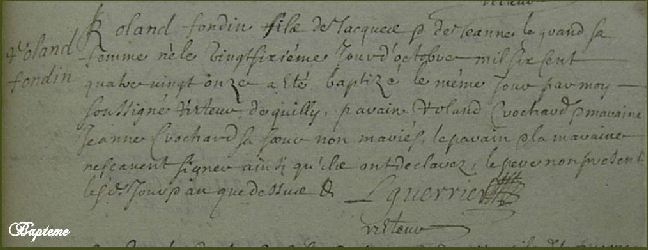 Roland
fondin
Roland fondin fils de Jacques & de Jeanne le quand sa
femme né le vingt sixiéme Jour d'octobre mil six cent
quatre vingt onze a été baptizé le même Jour par moy
soussigné victeur d'equilly, parain Roland Crochard & maraine
Jeanne Crochard sa soeur non mariés, le parain & la maraine
ne scavent signer ainsi qu'ils ont declarez, le pere non present
les d. Jour & an que dessus &
Lguerrier
victeur
Bapteme